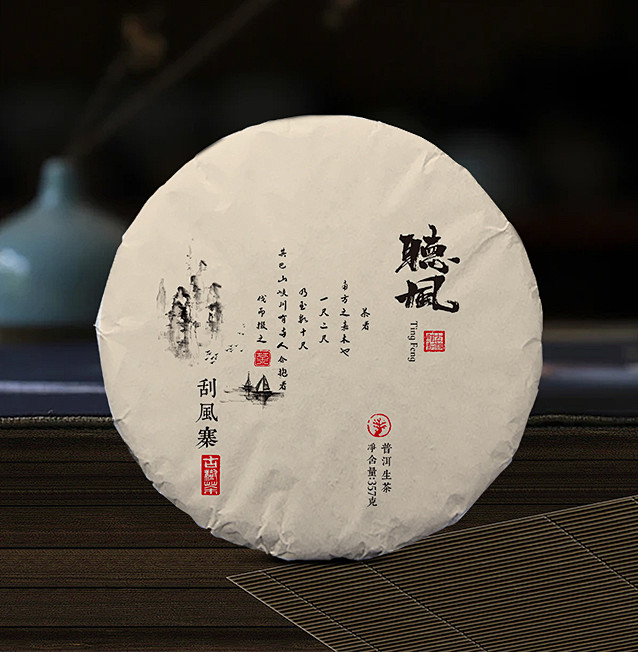 聽風
Ting Feng
茶者
南方之嘉木也
一尺二尺
乃至数十尺
其巴山峡川有两人合抱者
伐而掇之
刮風寨
古樹茶
普洱生茶
净含量:357克